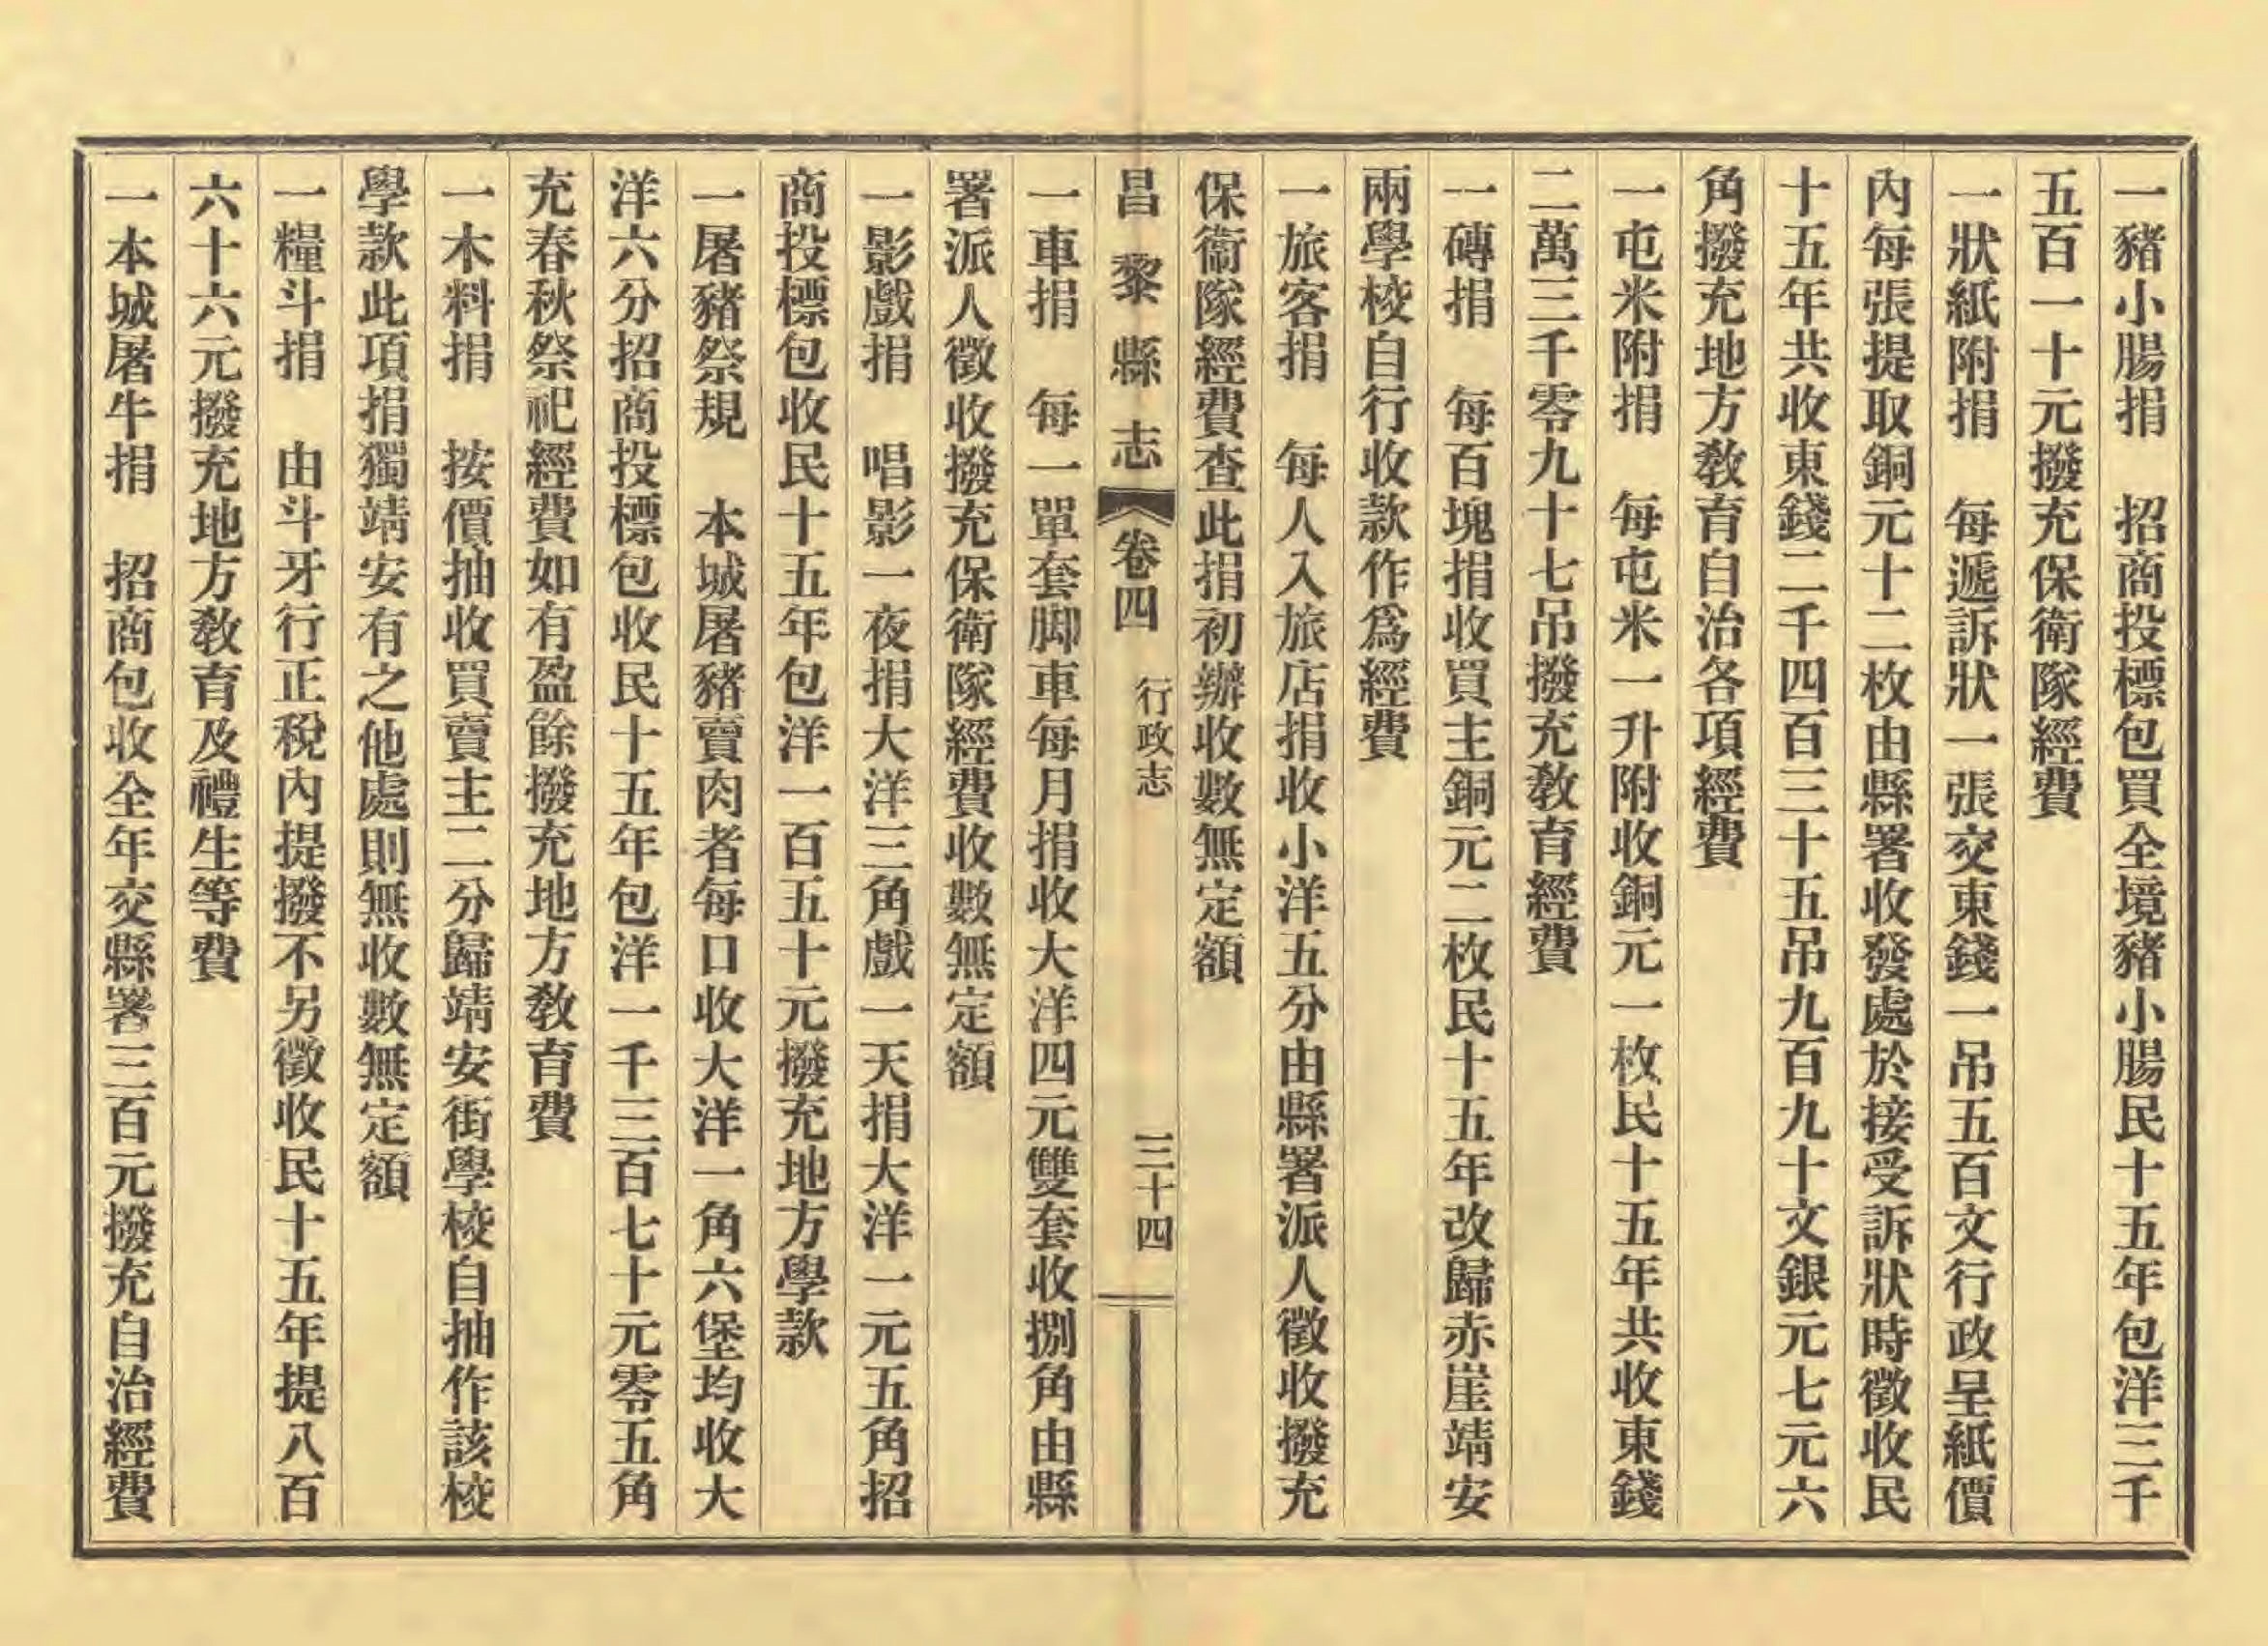 一豬小腸捐　招商投標包買全境豬小腸民十五年包洋三千
五百一十元撥充保衛隊經費
一狀紙附捐　每遞訴狀一張交東錢一吊五百文行政呈紙價
內每張提取銅元十二枚由縣署收發處於接受訴狀時徵收民
十五年共收東錢二千四百三十五吊九百九十文銀元七元六
角撥充地方敎育自治各項經費
一屯米附捐　每屯米一升附收銅元一枚民十五年共收東錢
二萬三千零九十七吊撥充敎育經費
一磚捐　每百塊捐收買主銅元二枚民十五年改歸赤崖靖安
兩學校自行收款作爲經費
一旅客捐　每人入旅店捐收小洋五分由縣署派人徵收撥充
保衛隊經費查此捐初辦收數無定額
昌黎縣志　卷四　行政志　三十四
一車捐　每一單套脚車每月捐收大洋四元雙套收捌角由縣
署派人徵收撥充保衛隊經費收數無定額
一影戲捐　唱影一夜捐大洋三角戲一天捐大洋一元五角招
商投標包收民十五年包洋一百五十元撥充地方學款
一屠豬祭規　本城屠豬賣肉者每口收大洋一角六堡均收大
洋六分招商投標包收民十五年包洋一千三百七十元零五角
充春秋祭祀經費如有盈餘撥充地方敎育費
一木料捐　按價抽收買賣主二分歸靖安街學校自抽作該校
學款此項捐獨靖安有之他處則無收數無定額
一糧斗捐　由斗牙行正稅內提撥不另徵收民十五年提八百
六十六元撥充地方敎育及禮生等費
一本城屠牛捐　招商包收全年交縣署三百元撥充自治經費